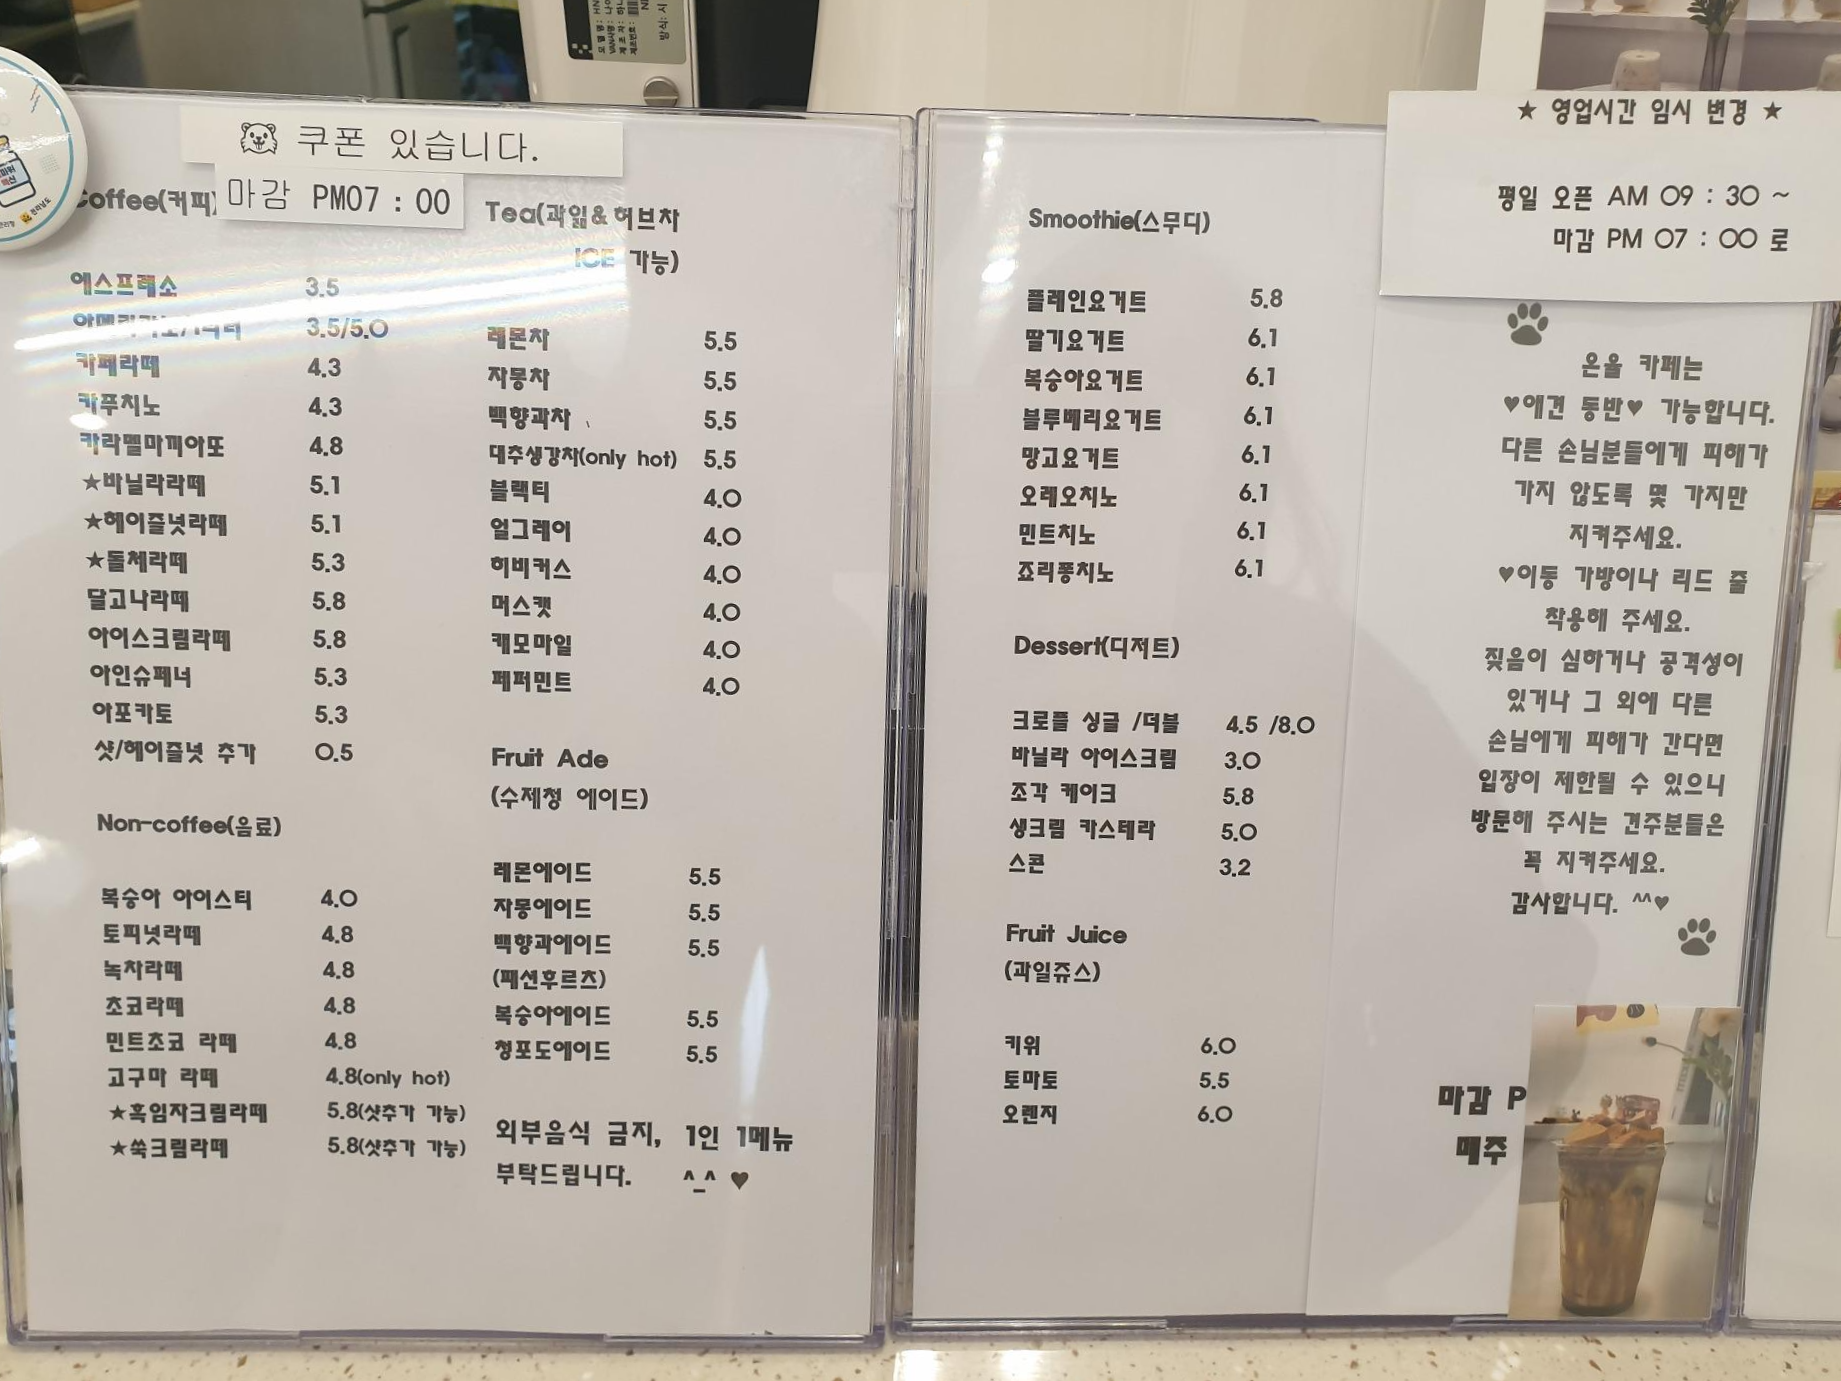 쿠폰 있습니다.
마감 PM07 : 00
Coffee(커피)
에스프레소 3.5
3.5/5.0
카페라떼 4.3
카푸치노 4.3
카라멜마끼아또 4.8
★바닐라라떼 5.1
★헤이즐넛라떼 5.1
★돌체라떼 5.3
달고나라떼 5.8
아이스크림라떼 5.8
아인슈페너 5.3
아포카토 5.3
샷/헤이즐넛 추가 0.5
Non-coffee(음료)
복숭아 아이스티 4.0
토피넛라떼 4.8
녹차라떼 4.8
초코라떼 4.8
민트초코 라떼 4.8
고구마 라떼 4.8(only hot)
★흑임자크림라떼 5.8(샷추가 가능)
★쑥크림라떼 5.8(샷추가 가능)
Tea(과일&허브차
ICE 가능)
레몬차 5.5
자몽차 5.5
백향과차 5.5
대추생강차(only hot) 5.5
블랙티 4.0
얼그레이 4.0
히비커스 4.0
머스캣 4.0
캐모마일 4.0
페퍼민트 4.0
Fruit Ade
(수제청 에이드)
레몬에이드 5.5
자몽에이드 5.5
백향과에이드 5.5
(패션후르츠)
복숭아에이드 5.5
청포도에이드 5.5
외부음식 금지, 1인 1메뉴
부탁드립니다. ^_^ ♥
Smoothie(스무디)
플레인요거트 5.8
딸기요거트 6.1
복숭아요거트 6.1
블루베리요거트 6.1
망고요거트 6.1
오레오치노 6.1
민트치노 6.1
죠리퐁치노 6.1
Dessert(디저트)
크로플 싱글 /더블 4.5 /8.0
바닐라 아이스크림 3.0
조각 케이크 5.8
생크림 카스테라 5.0
스콘 3.2
Fruit Juice
(과일쥬스)
키위 6.0
토마토 5.5
오렌지 6.0
★ 영업시간 임시 변경 ★
평일 오픈 AM 09 : 30 ~
마감 PM 07 : 00 로
은율 카페는
♥애견 동반♥ 가능합니다.
다른 손님분들에게 피해가
가지 않도록 몇 가지만
지켜주세요.
♥이동 가방이나 리드 줄
착용해 주세요.
짖음이 심하거나 공격성이
있거나 그 외에 다른
손님에게 피해가 간다면
입장이 제한될 수 있으니
방문해 주시는 견주분들은
꼭 지켜주세요.
감사합니다. ^^♥
마감 P
매주